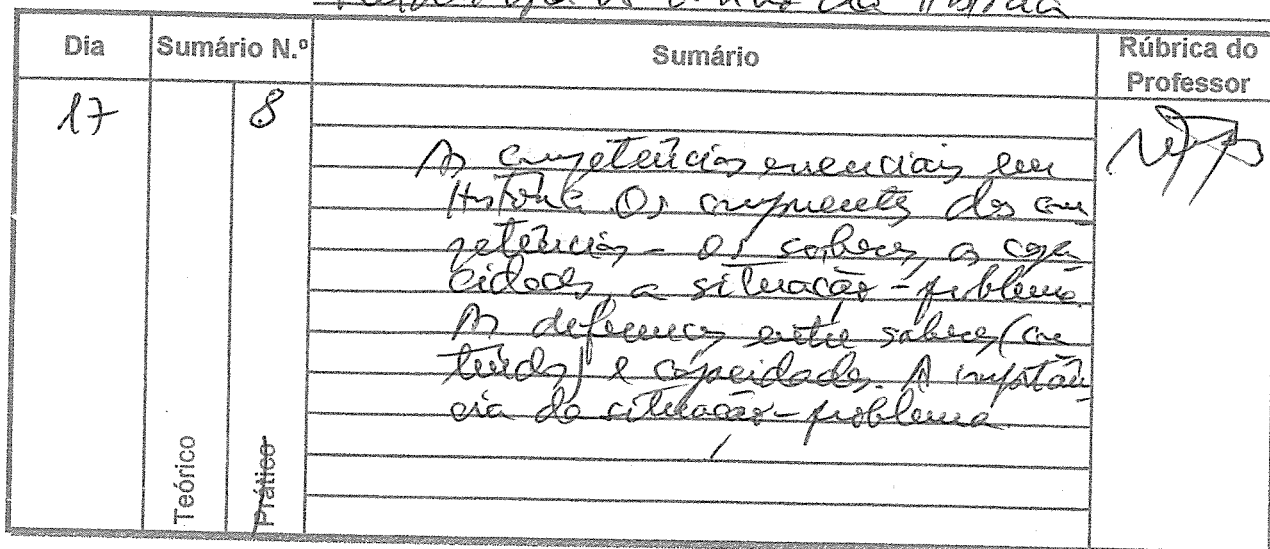 do Ensino da História
Dia Sumário N.º Sumário Rúbrica do Professor
17 8
As competências essenciais em
História. Os componentes das com
petências - os saberes, as capa
cidades, a situação-problema.
As diferenças entre saberes (con
teúdos) e capacidades. A importân
cia da situação-problema
Teórico
Prático